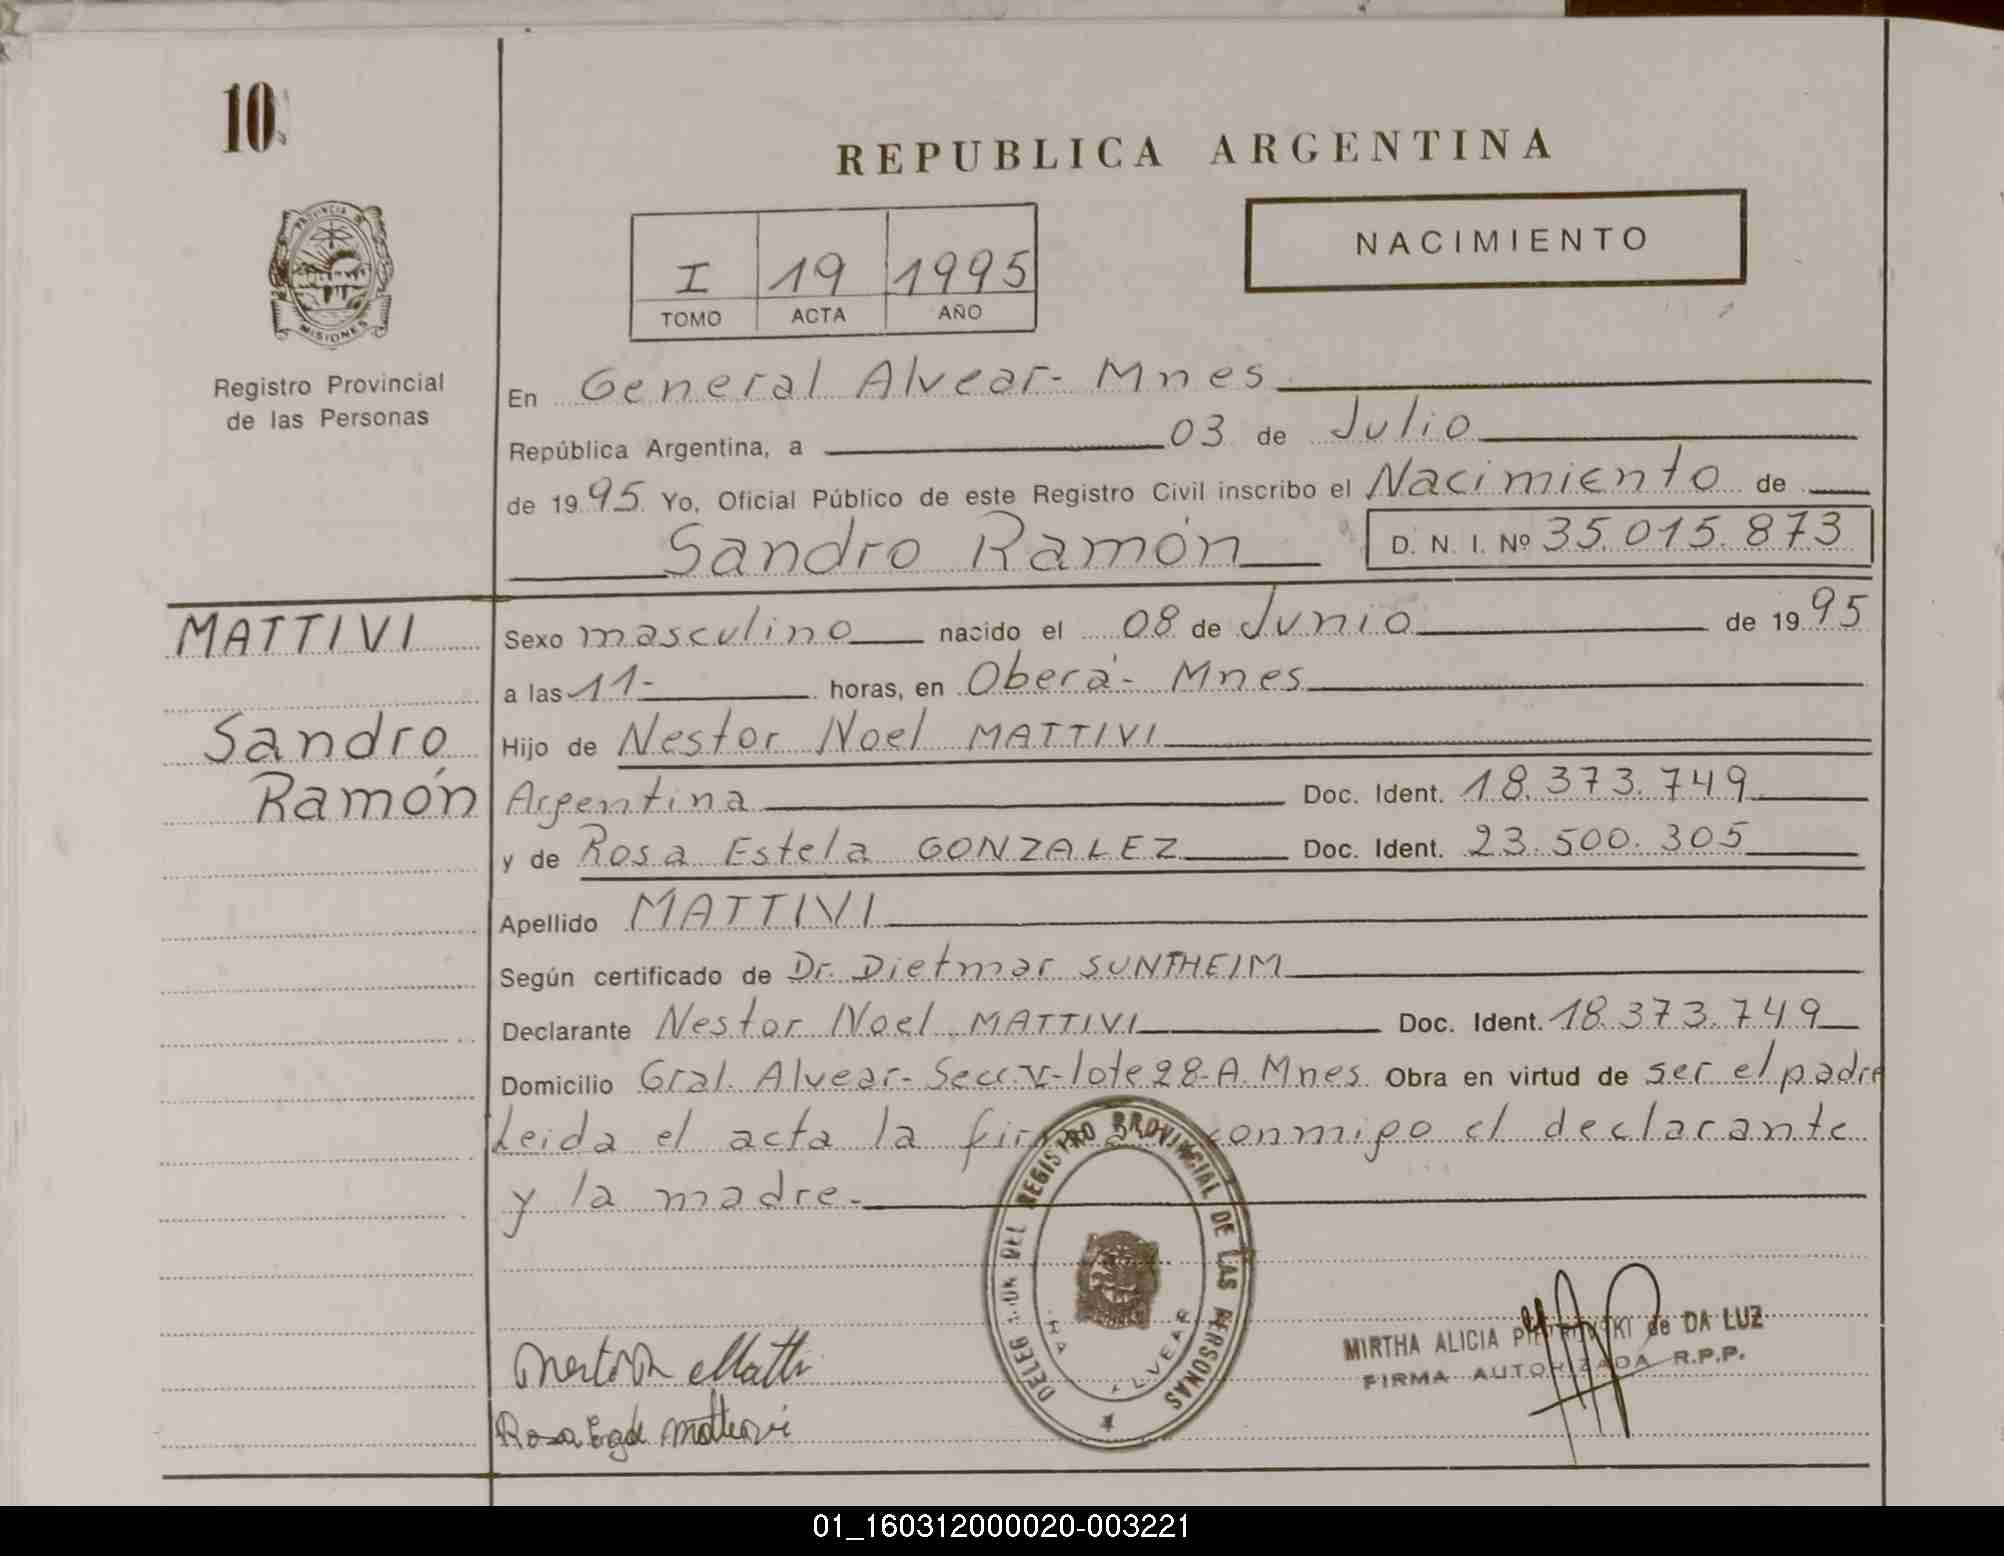 10
REPUBLICA ARGENTINA
NACIMIENTO
I 19 1995
TOMO ACTA AÑO
PROVINCIA DE
MISIONES
Registro Provincial
de las Personas
En General Alvear - Mnes
República Argentina, a 03 de Julio
de 1995 Yo, Oficial Público de este Registro Civil inscribo el Nacimiento de
Sandro Ramón D. N. I. Nº 35.015.873
MATTIVI
Sandro
Ramón
Sexo masculino nacido el 08 de Junio de 1995
a las 11- horas, en Oberá - Mnes
Hijo de Nestor Noel MATTIVI
Argentina Doc. Ident. 18.373.749
y de Rosa Estela GONZALEZ Doc. Ident. 23.500.305
Apellido MATTIVI
Según certificado de Dr. Dietmar SUNTHEIM
Declarante Nestor Noel MATTIVI Doc. Ident. 18.373.749
Domicilio Gral. Alvear - Secc. V - lote 28-A. Mnes. Obra en virtud de ser el padre
Leida el acta la conmigo el declarante
y la madre.-
DEL REGISTRO PROVINCIAL DE LAS PERSONAS
ALVEAR
MIRTHA ALICIA de DA LUZ
FIRMA AUTORIZADA R.P.P.
Rosa
01_160312000020-003221